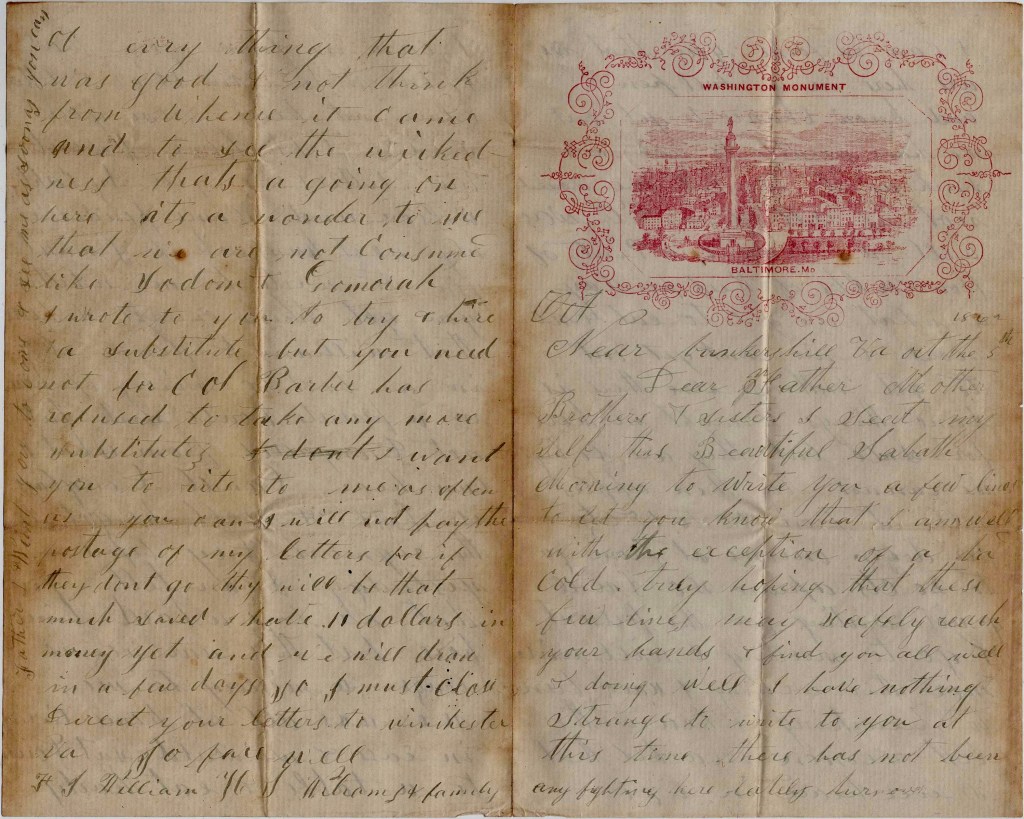 Father I Want you to come & see me as soon as you can
of every thing that
was good & not think
from whence it came
and to see the wicked
ness thats a going on
here its a wonder to me
that we are not Consume
like Sodom & Gomorah
I wrote to you to try & hire
a substitute but you need
not for Col Barber has
refused to take any more
substitutes & dont I want
you to rite to me as often
as you can I will not pay the
postage of my letters for if
they dont go they will be that
much saved I have 11 dollars in
money yet and we will draw
in a few days so I must close
Direct your letters to winchester
Va So fare well
William H & family
WASHINGTON MONUMENT
BALTIMORE. MD
Oct 186
Near bunkershill Va oct the 5th
Dear Father Mother
Brothers & Sisters I Seat my
self this Beautiful Sabath
Morning to Write You a few lines
to let you know that I am well
with the exception of a ba
Cold truly hoping that these
few lines may Safely reach
your hands & find you all well
& doing well I have nothing
Strange to write to you at
this time there has not been
any fighting here lately